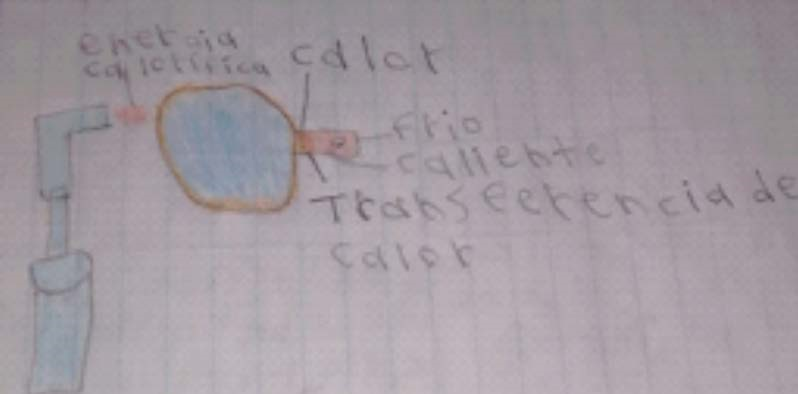 energia
calorifica
calor
Frio
caliente
Transferencia de
calor